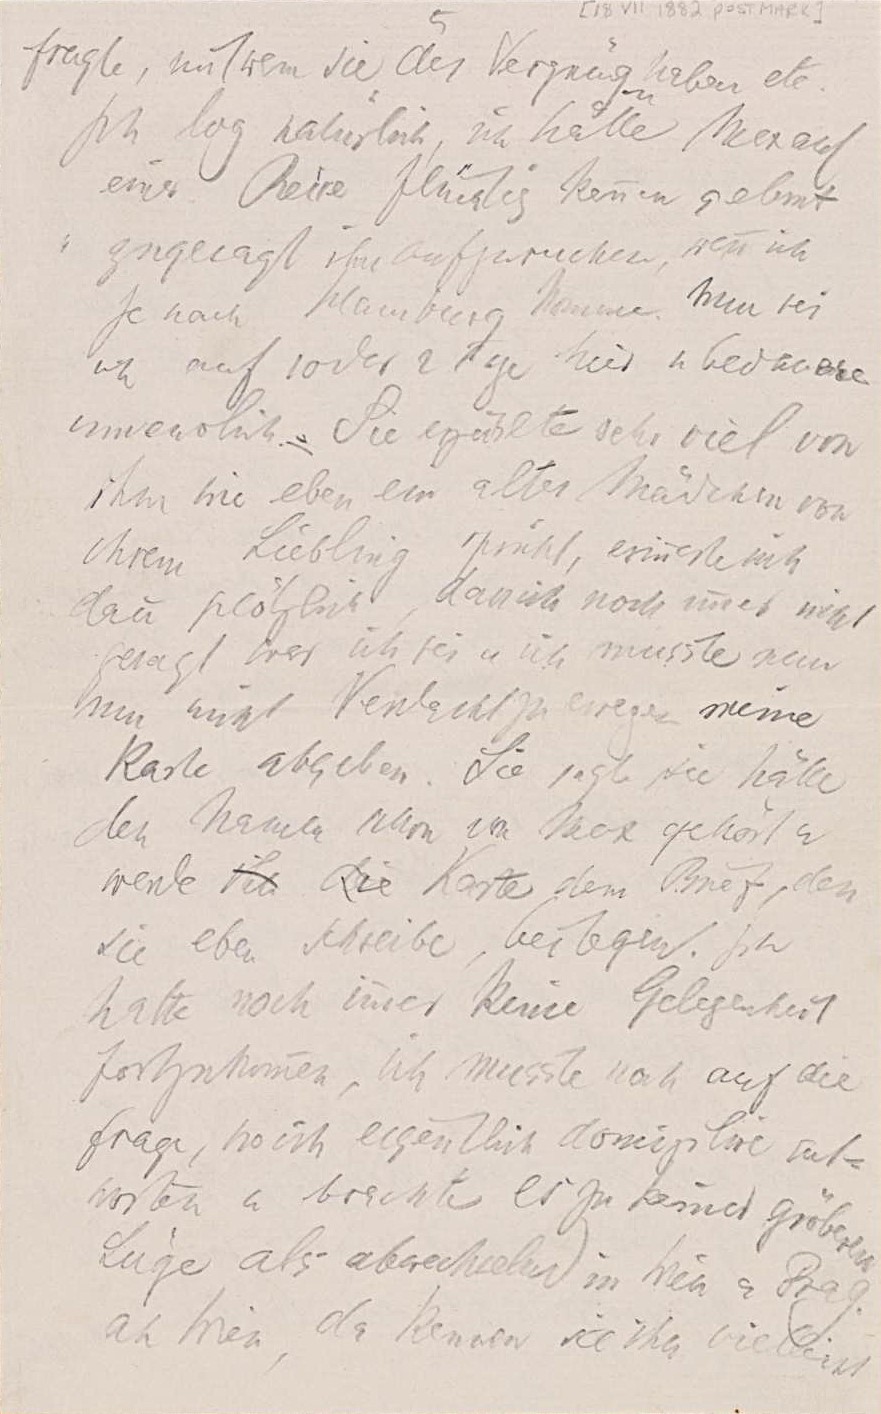 [18 VII 1882 POSTMARK]
5
fragte, mit wem sie das Vergnüg haben etc.
Ich log natürlich, ich hätte Max auf
einer Reise flüchtig kennen gelernt
u zugesagt ihn aufzusuchen, wenn ich
je nach Hamburg komme. Nun sei
ich auf 1 oder 2 Tage hier u bedauere
unendlich. Sie erzählte sehr viel von
ihm wie eben ein altes Mädchen von
ihrem Liebling spricht, erinnerte sich
dann plötzlich, dass ich noch immer nicht
gesagt wer ich sei u ich musste nun
um nicht Verdacht zu erregen meine
Karte abgeben. Sie sagte sie hätte
den Namen schon von Max gehört u
werde die Karte dem Brief, den
sie eben schreibe, beilegen. Ich
hatte noch immer keine Gelegenheit
fortzukommen, ich musste noch auf die
Frage, wo ich eigentlich domizilire ant=
worten u brachte es zu keiner gröberen
Lüge als abwechselnd in Wien u Prag.
Ah Wien, da kennen sie ihn vielleicht